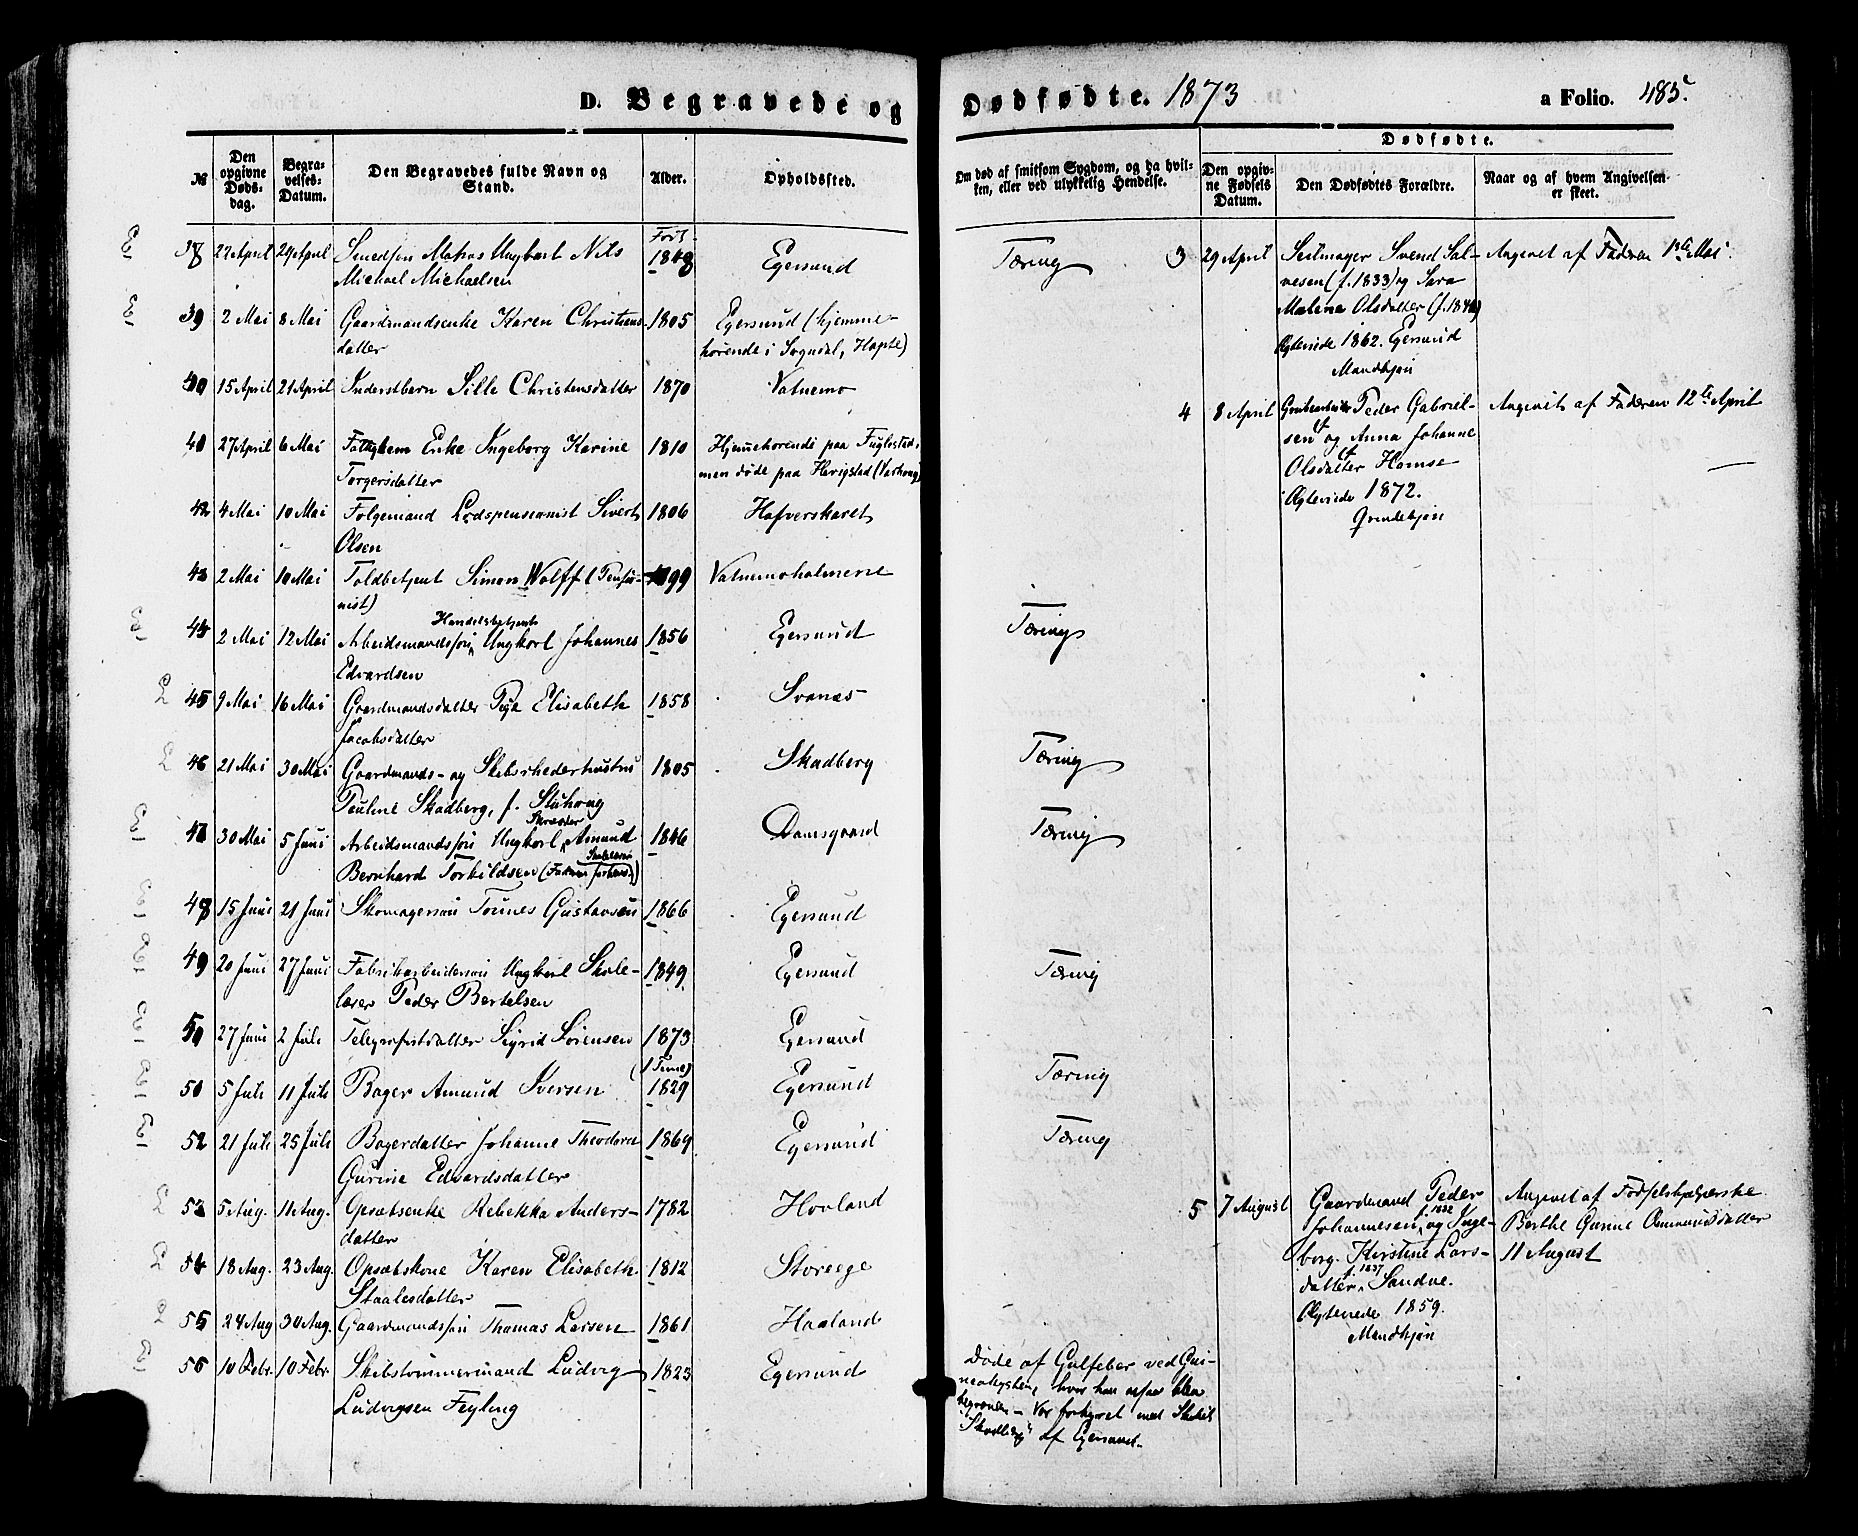 D. Begravede og Dødfødte. 1873 a Folio. 485.
Dødfødte.
№ | Den opgivne Døds-dag. | Begra-velses-Datum. | Den Begravedes fulde Navn og Stand. | Alder. | Opholdssted. | Om død af smitsom Sygdom, og da hvil-ken, eller ved ulykkelig Hendelse. | Den opgiv-ne Fødsels Datum. | Den Dødfødtes Forældre. | Naar og af hvem Angivelsen er skeet.
E 38 | 22 April | 29 April | Smedsøn Matros Ungkarl Nils
Michael Michaelsen | Født 1848 | Egersund | Tæring
E 39 | 2 Mai | 8 Mai | Gaardmandsenke Karen Christens-
datter | 1805 | Egersund (hjemme-
hørende i Sogndal,
40 | 15 April | 21 April | Inderstbarn Sille Christensdatter | 1870 | Vatnemo
41 | 27 April | 6 Mai | Enke Ingeborg Karine
Torgersdatter | 1810 | Hjemmehørende paa Fuglestad,
men døde paa
42 | 4 Mai | 10 Mai | Følgemand Lodspensionist Sivert
Olsen | 1806 | Hafverskaret
43 | 2 Mai | 10 Mai | Toldbetjent Simon Wolff (Pensio-
nist) | 1799 | Vatnemoholmene
E 44 | 2 Mai | 12 Mai | Handelsbetjent
Arbeidsmandssøn, Ungkarl Johannes
Edvardsen | 1856 | Egersund | Tæring
L 45 | 9 Mai | 16 Mai | Gaardmandsdatter Elisabeth
Jacobsdatter | 1858 | Svanes
L 46 | 21 Mai | 30 Mai | Gaardmands- og Skibsrhederhustru
Pauline Skadberg, f. Stuhaug | 1805 | Skadberg | Tæring
E 47 | 30 Mai | 5 Juni | Skræder
Arbeidsmandssøn Ungkarl, Amund
Bernhard Torkildsen | 1846 | Damsgaard | Tæring
E 48 | 15 Juni | 21 Juni | Skomagersøn Tønnes Gustavsen | 1866 | Egersund
E 49 | 20 Juni | 27 Juni | Fabrikarbeidersøn Ungkarl Skole-
lærer Peder Bertelsen | 1849 | Egersund | Tæring
E 50 | 27 Juni | 2 Juli | Telegrafistdatter Sigrid Sørensen | 1873
(1 Time) | Egersund
E 51 | 5 Juli | 11 Juli | Bager Amund Iversen | 1829 | Egersund | Tæring
E 52 | 21 Juli | 25 Juli | Bagerdatter Johanne Theodora
Gurine Edvardsdatter | 1869 | Egersund | Tæring
L 53 | 5 Aug. | 11 Aug. | Opsætsenke Rebekka Anders-
datter | 1782 | Hovland
L 54 | 18 Aug. | 23 Aug. | Opsætskone Karen Elisabeth
Staalesdatter | 1812 | Storeege
L 55 | 24 Aug | 30 Aug. | Gaardmandssøn Thomas Larsen | 1861 | Haaland
E 56 | 10 Febr. | 10 Febr. | Skibstømmermand Ludvig
Ludvigsen Feyling | 1823 | Egersund | Døde af Gulfeber ved Gui-
neakysten, hvor han ogsaa blev
begraven – Var forhyret med Skibet
"Skadberg" af Egersund.
3 | 29 April | Seilmager Svend Sal-
vesen (f. 1833) og Sara
Malene Olsdatter
Ægteviede 1862. Egersund
Mandkjøn | Angivet af Faderen 1ste Mai.
4 | 8 April | Peder Gabriel-
sen og Anna Johanne
Olsdatter Hamse
Ægteviede 1872.
Qvindekjøn | Angivet af Faderen 12te April
5 | 7 August | Gaardmand Peder
Johannesen, f. 1832 og Inge-
borg Kirstine Lars-
datter, f. 1837 Sandve.
Ægteviede 1859.
Mandkjøn | Angivet af Fødselshjælperske
Berthe Gurine Ommundsdatter
11 August